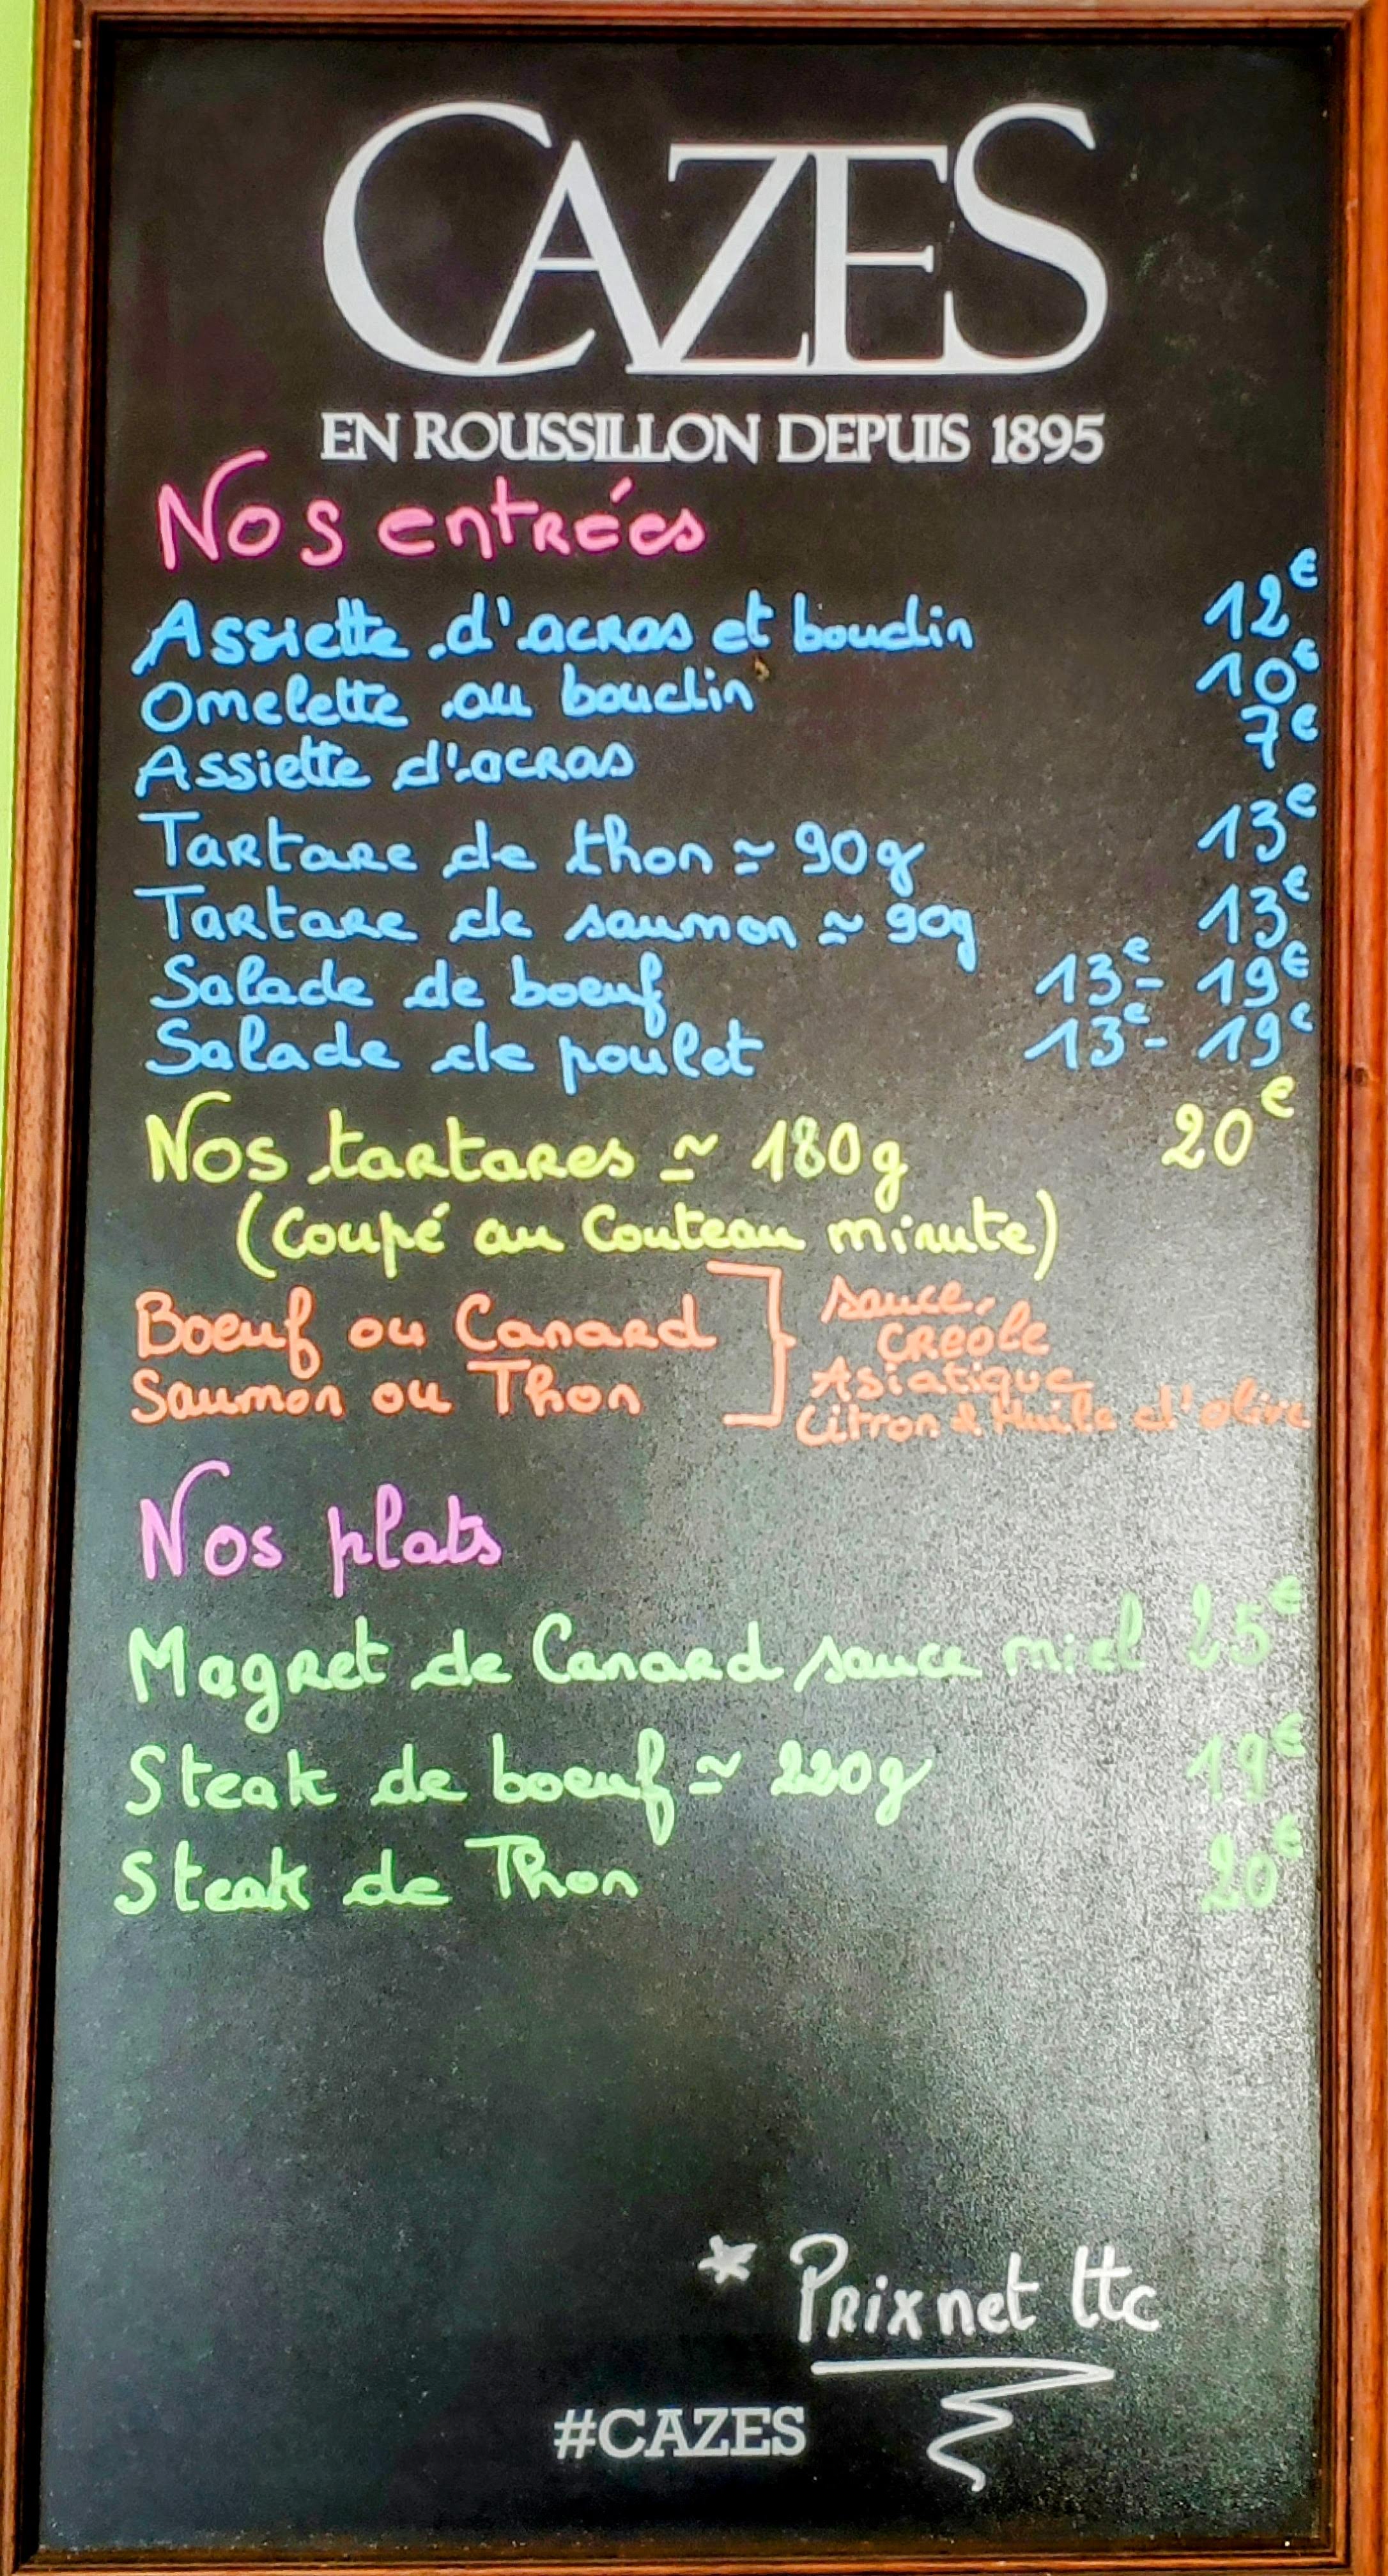 CAZES
EN ROUSSILLON DEPUIS 1895
Nos entrées
Assiette d'acras et boudin 12€
Omelette au boudin 10€
Assiette d'acras 7€
Tartare de thon ≃ 90g 13€
Tartare de saumon ≃ 90g 13€
Salade de boeuf 13€ - 19€
Salade de poulet 13€ - 19€
Nos tartares ≃ 180g 20€
(Coupé au Couteau minute)
Boeuf ou Canard
Saumon ou Thon
sauce,
CREOLE
Asiatique
Citron & Huile d'olive
Nos plats
Magret de Canard sauce miel 25€
Steak de boeuf ≃ 220g 19€
Steak de Thon 20€
* Prix net ttc
#CAZES